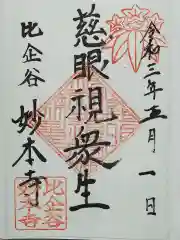 令和三年五月一日
慈眼視衆生
比企谷
妙本寺
比企谷
妙本寺